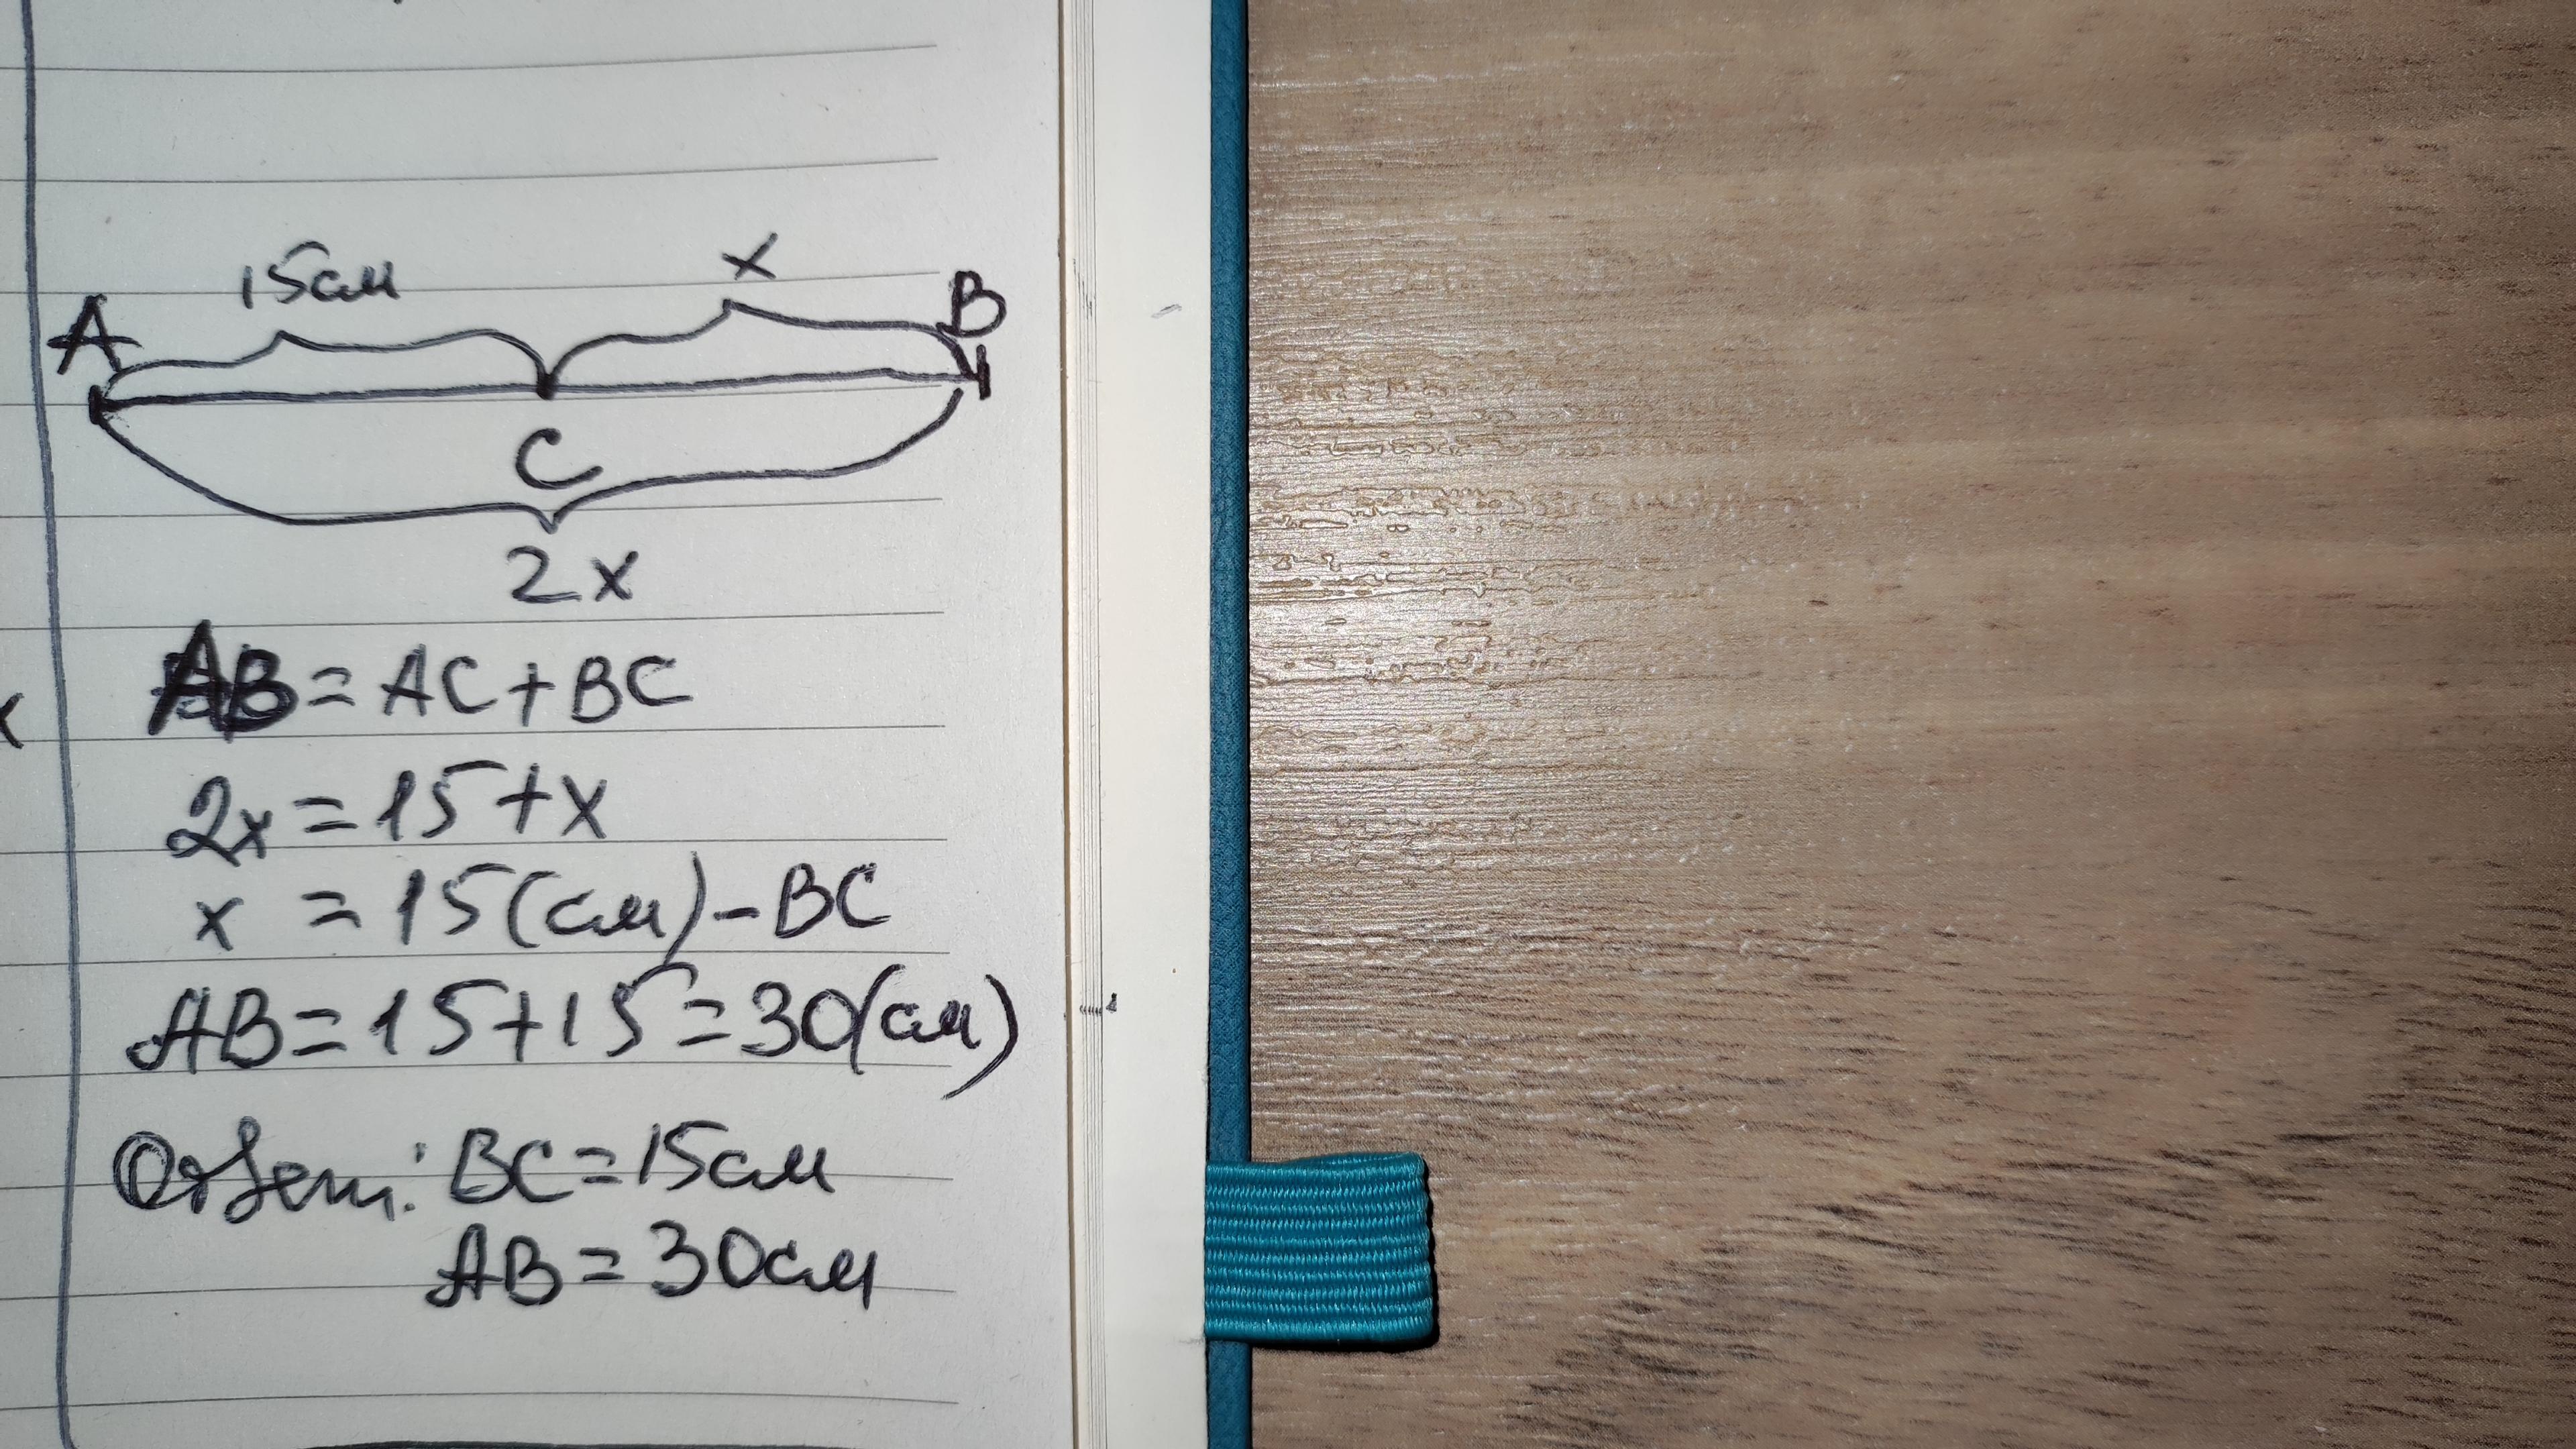 15см
x
A
B
C
2x
AB = AC + BC
2x = 15 + x
x = 15 (см) - BC
AB = 15 + 15 = 30 (см)
Ответ: BC = 15см
AB = 30см